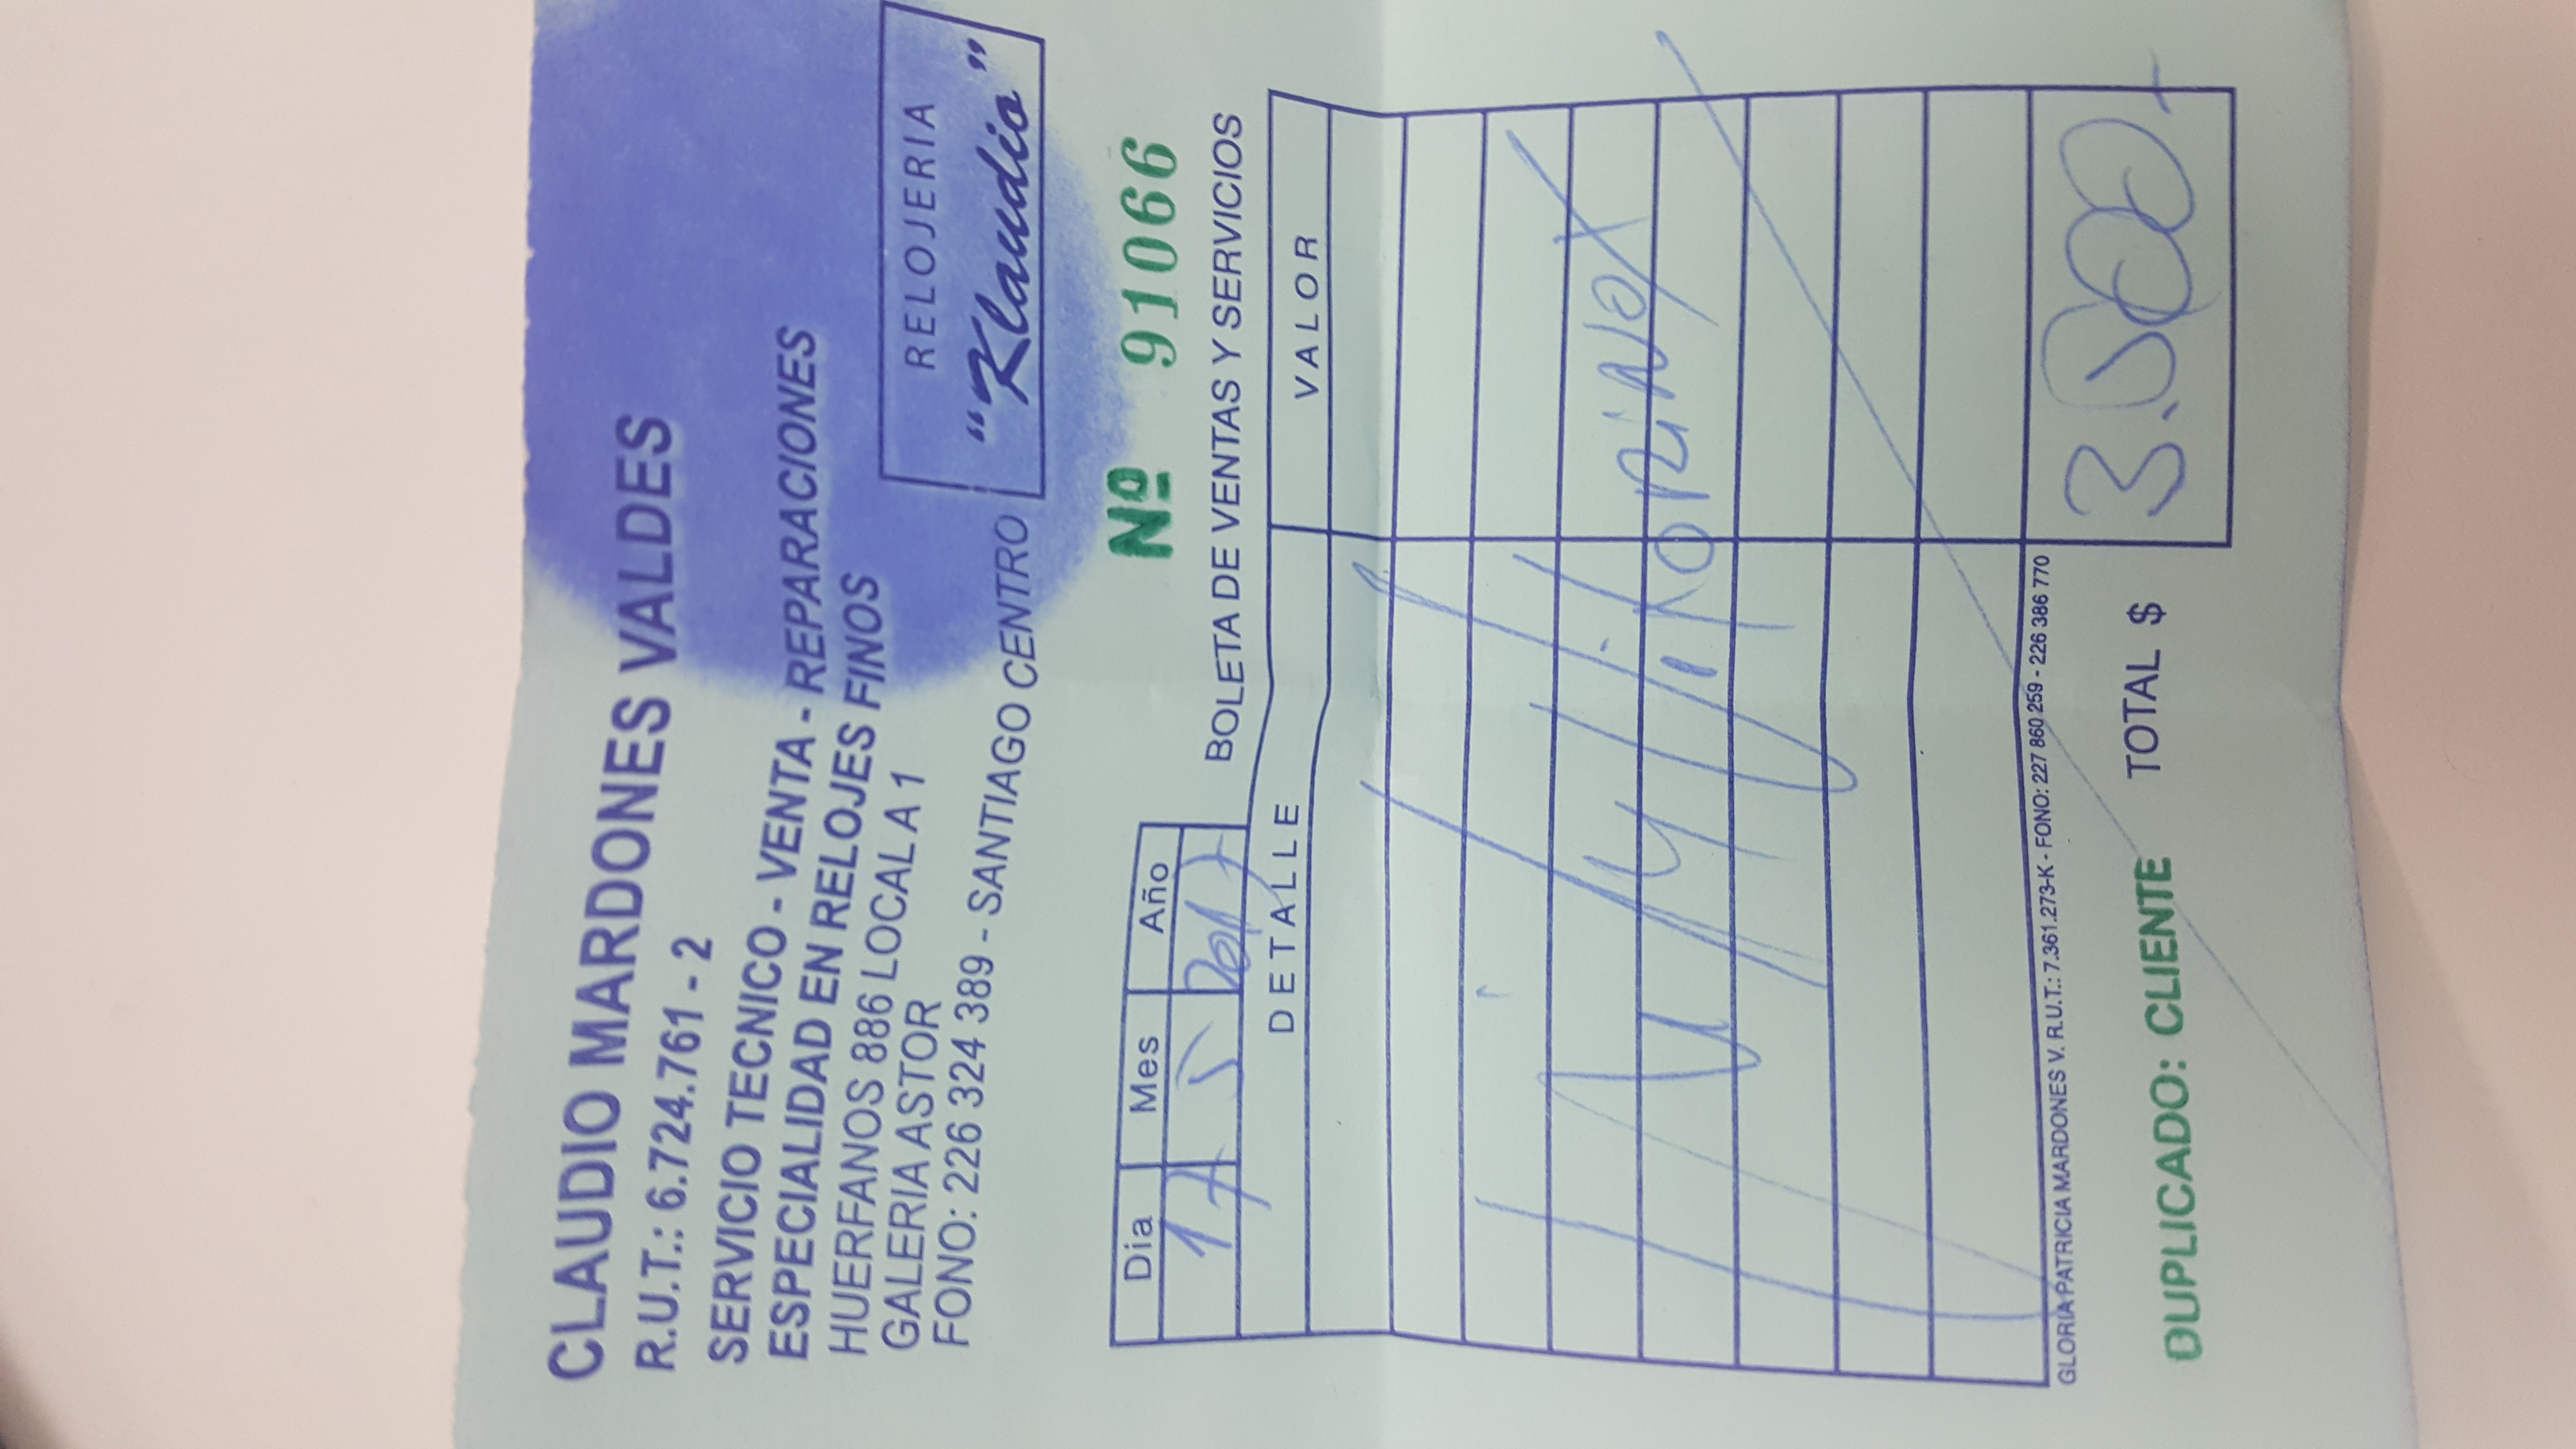 CLAUDIO MARDONES VALDES
R.U.T.: 6.724.761 - 2
SERVICIO TECNICO - VENTA - REPARACIONES
ESPECIALIDAD EN RELOJES FINOS
HUERFANOS 886 LOCAL A 1
GALERIA ASTOR
FONO: 226 324 389 - SANTIAGO CENTRO
RELOJERIA
"Klaudio"
Nº 91066
Dia Mes Año
17 5 2017
BOLETA DE VENTAS Y SERVICIOS
DETALLE VALOR
VitoRiNOX
GLORIA PATRICIA MARDONES V. R.U.T.: 7.361.273-K - FONO: 227 860 259 - 226 386 770
DUPLICADO: CLIENTE TOTAL $ 3.500.-